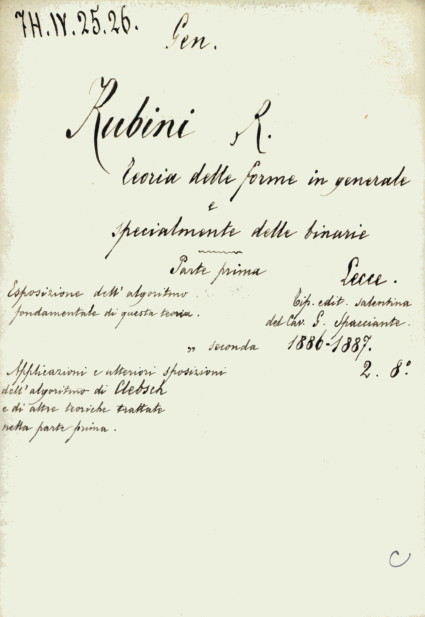 7H.IV.25.26.
Gen.
Rubini R.
Teoria delle forme in generale
e
specialmente delle binarie
Parte prima
Lecce.
Esposizione dell'algoritmo
fondamentale di questa teoria.
Tip. edit. Salentina
del Cav. G. Spacciante.
„ seconda 1886-1887.
Applicazioni e ulteriori sposizioni
dell'algoritmo di Clebsch
e di altre teoriche trattate
nella parte prima.
2. 8°
C